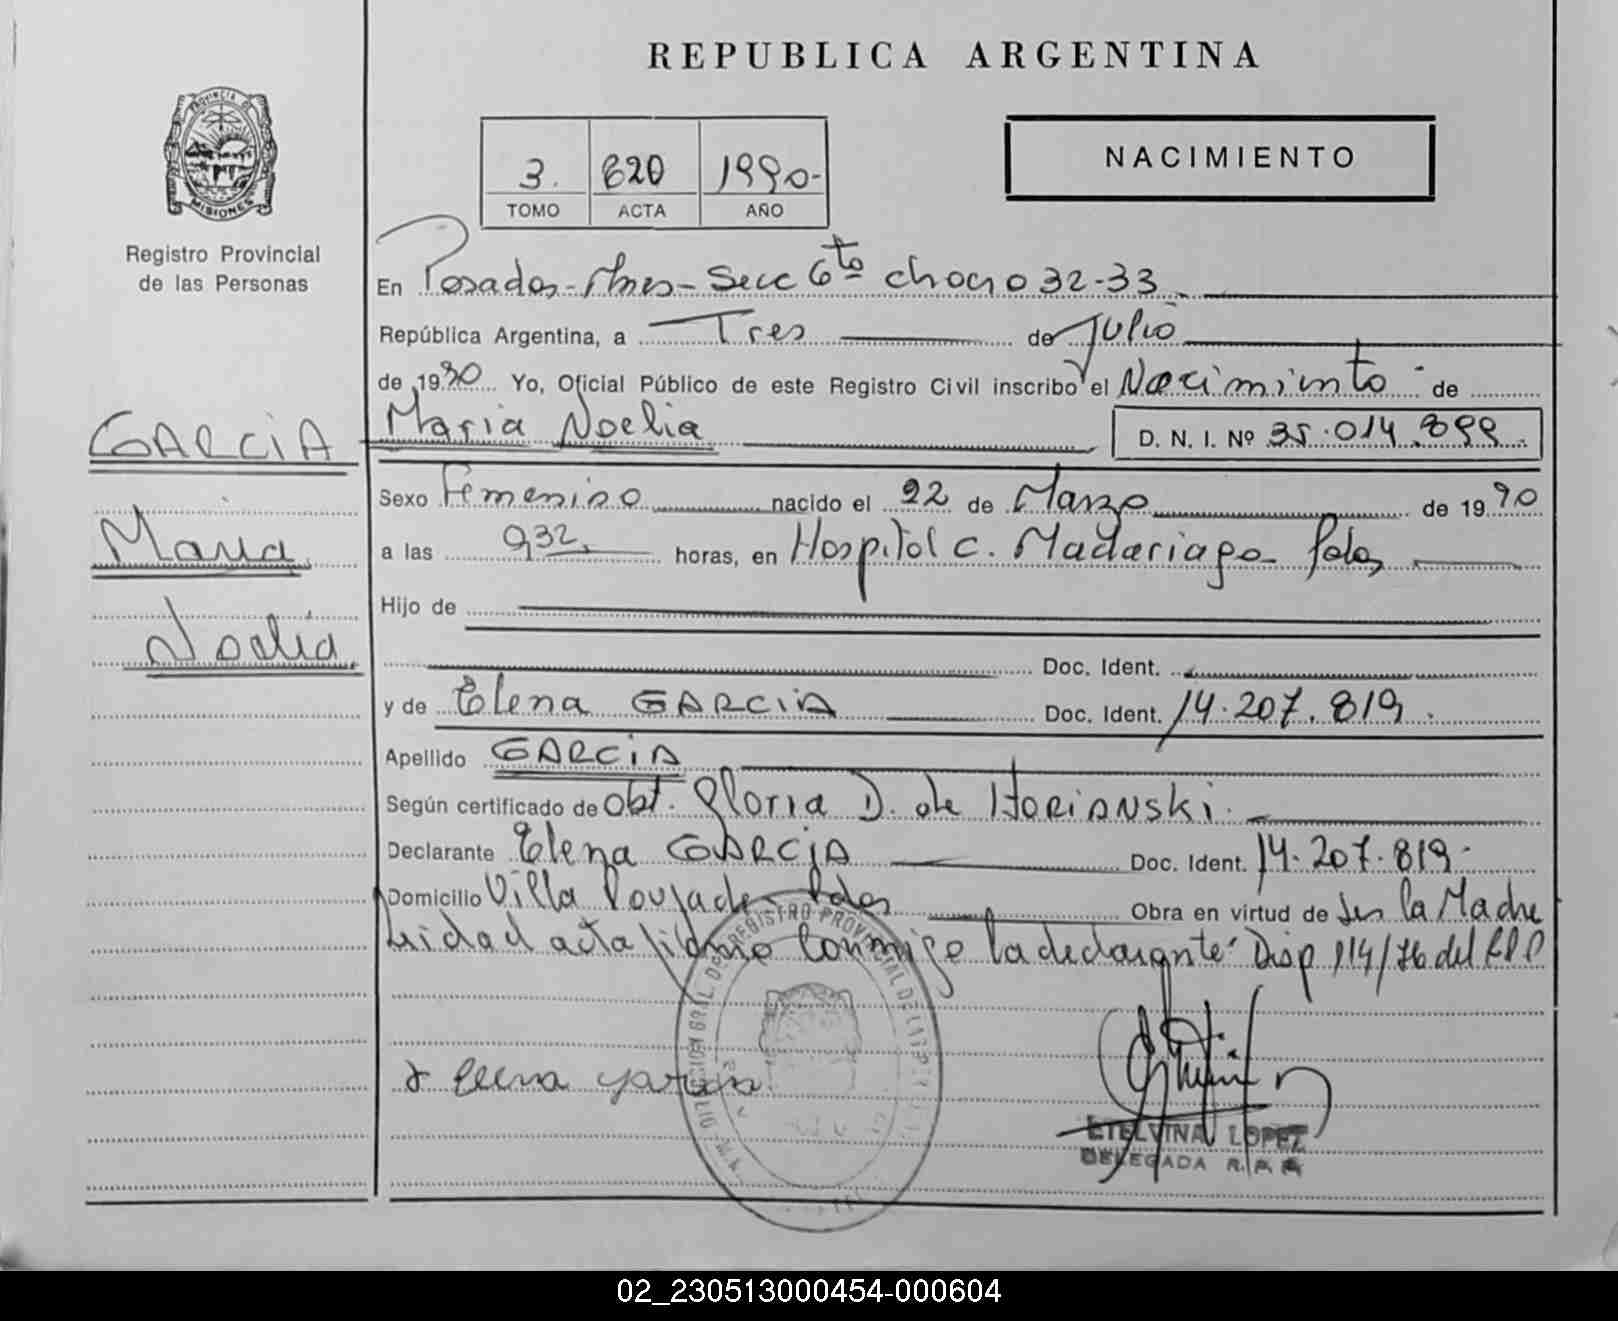 REPUBLICA ARGENTINA
NACIMIENTO
3. 620 1990-
TOMO ACTA AÑO
PROVINCIA DE
MISIONES
Registro Provincial
de las Personas
En Posadas - Mnes - Secc 6ta chacra 32-33
República Argentina, a Tres de Julio
de 1990 Yo, Oficial Público de este Registro Civil inscribo el Nacimiento de
GARCIA
Maria Noelia D. N. I. Nº 35.014.899
Sexo Femenino nacido el 22 de Marzo de 1990
Maria
a las 9,32 horas, en Hospital c. Madariaga Pdas
Hijo de
Noelia
Doc. Ident.
y de Elena GARCIA Doc. Ident. 14.207.819.
Apellido GARCIA
Según certificado de Obt. Gloria D. de HORIANSKI.
Declarante Elena GARCIA Doc. Ident. 14.207.819.
Domicilio Villa Poujade Pdas Obra en virtud de Ser la Madre
Leida el acta firma conmigo la declarante Disp 114/76 del RPP
Elena Garcia
ETELVINA LOPEZ
DELEGADA R.P.P.
02_230513000454-000604